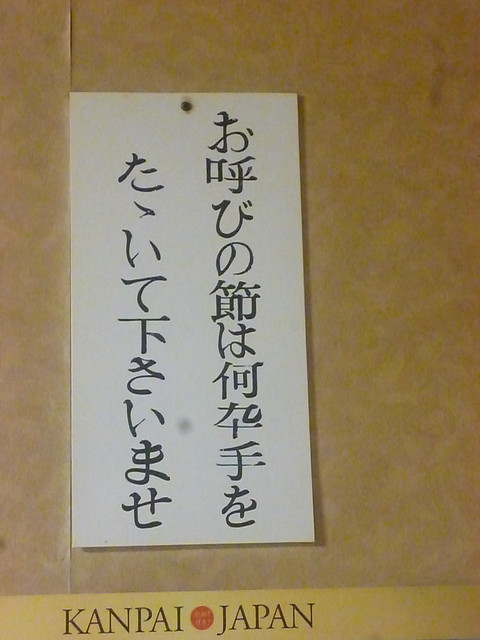 お呼びの節は何卒手を
たゝいて下さいませ
KANPAI JAPAN